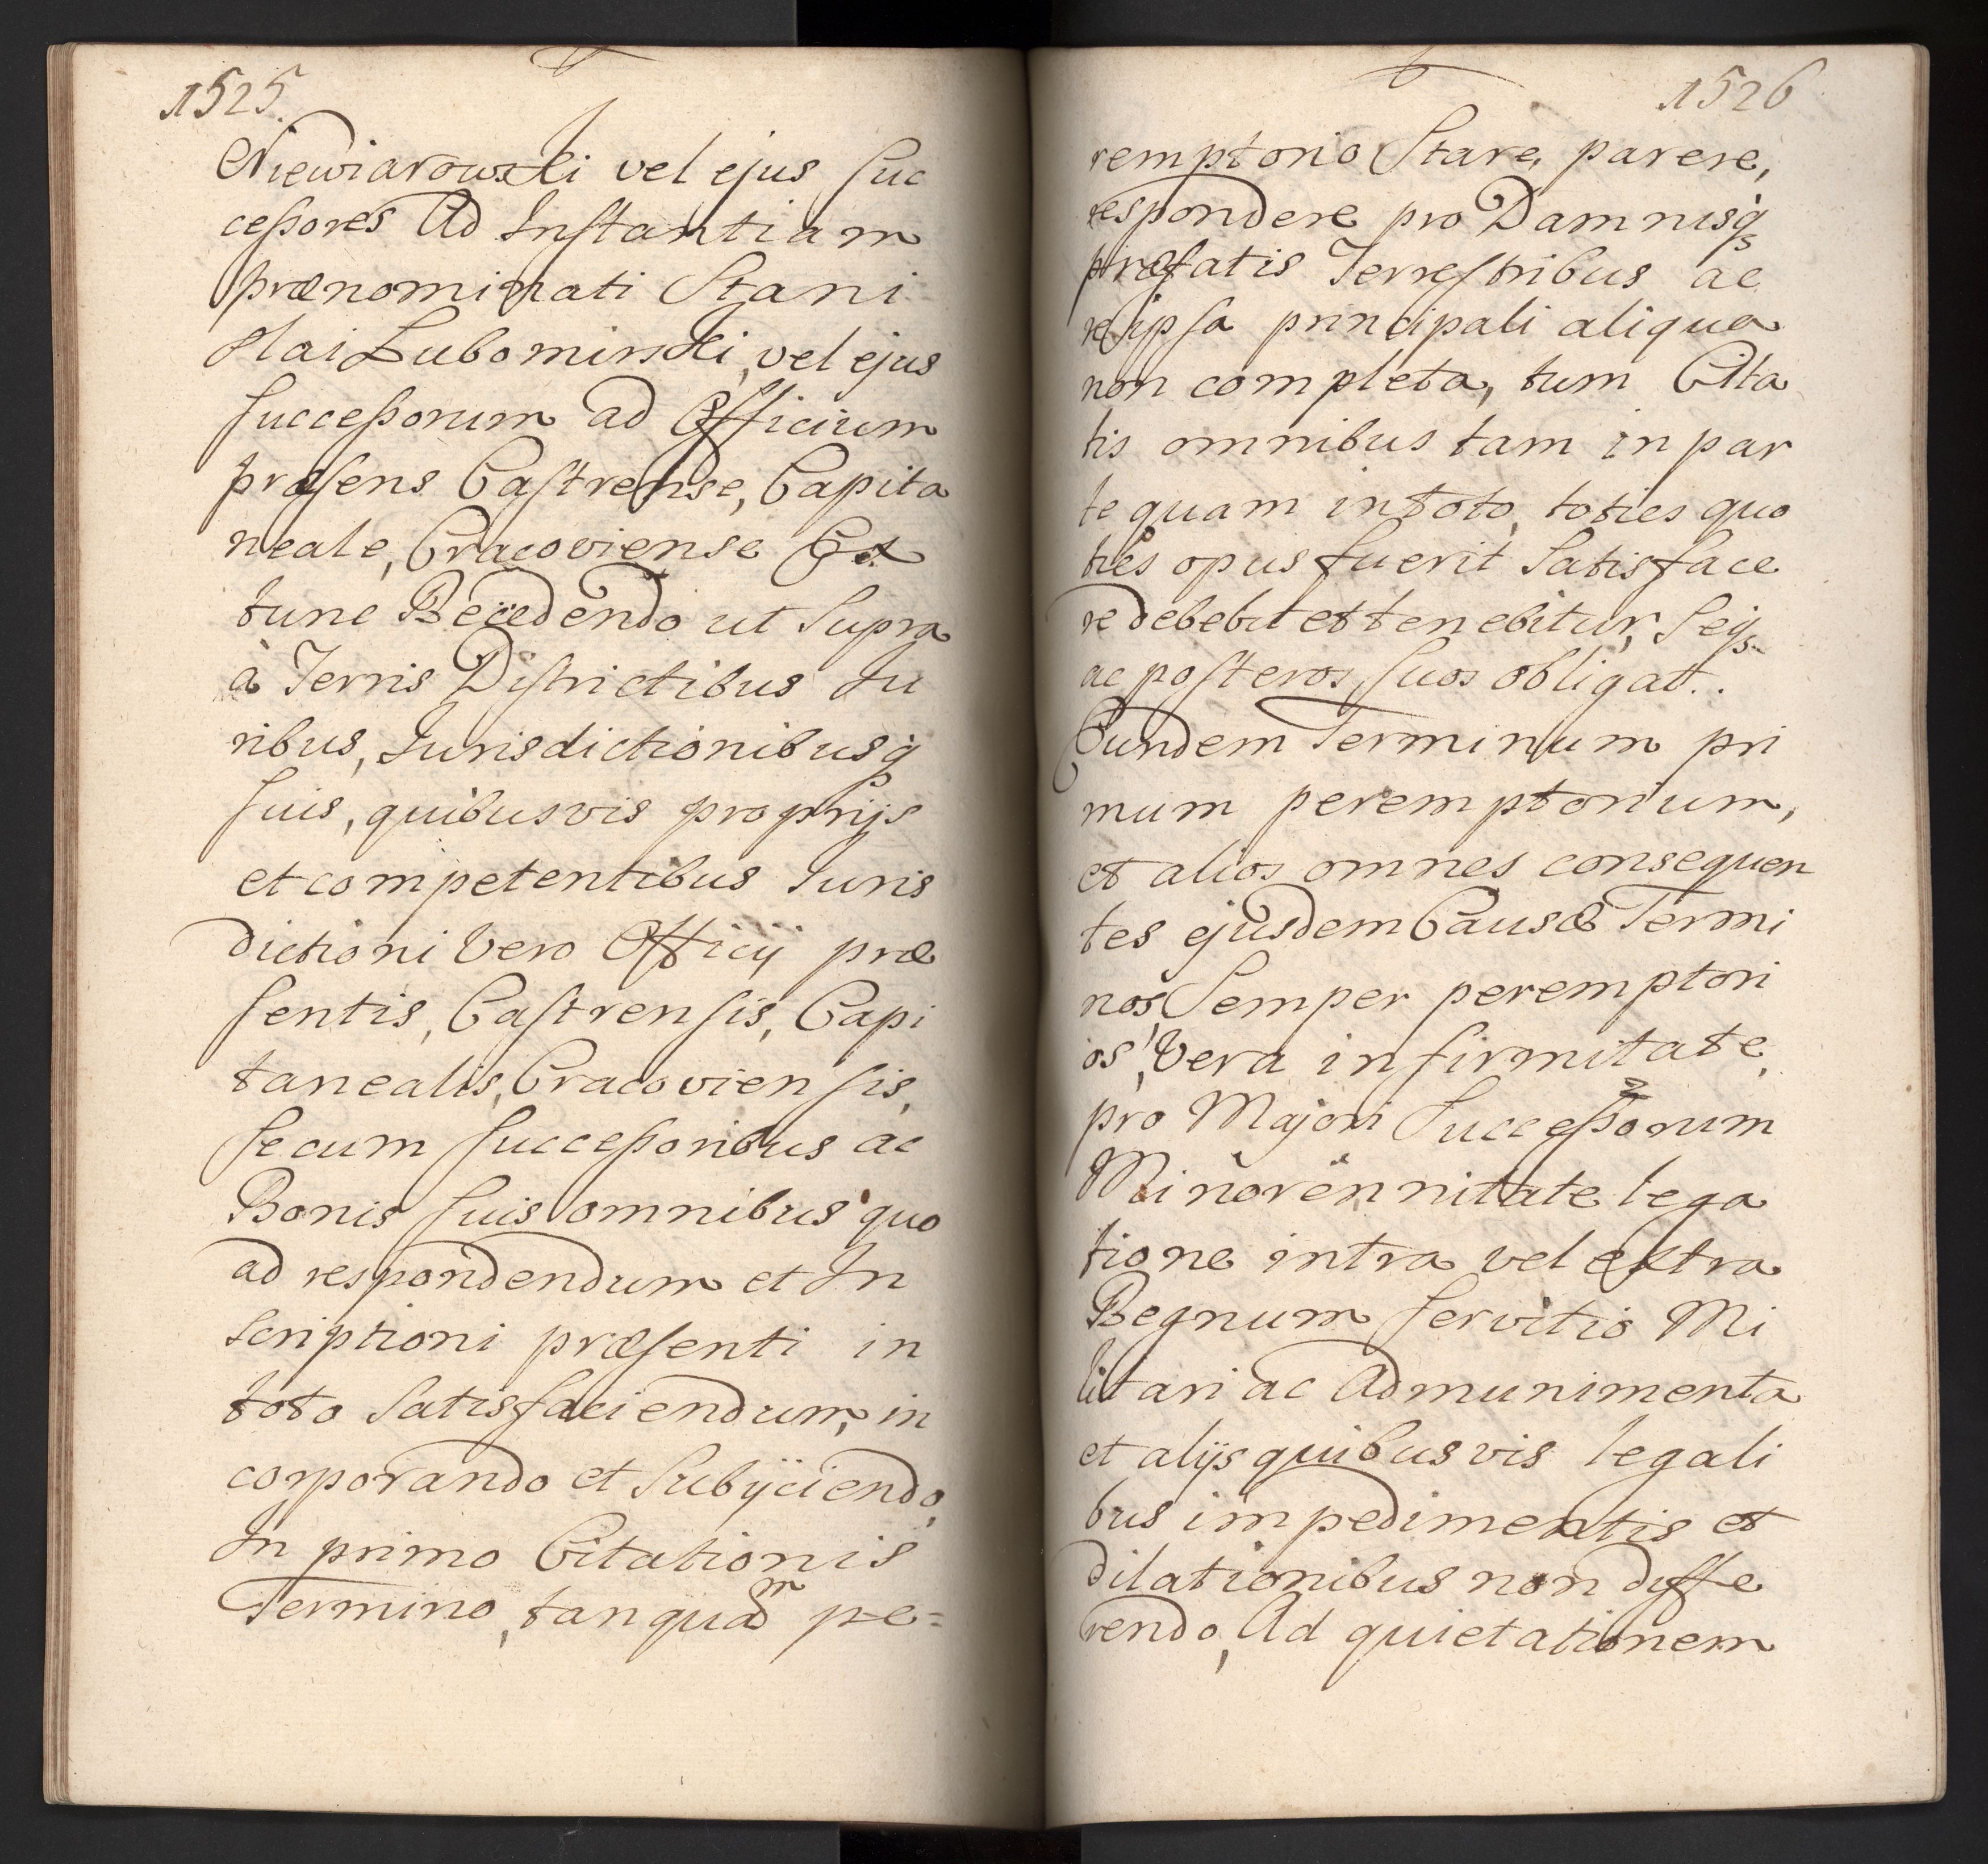 1525.
Niewiarowski vel ejus suc
cessores Ad Instantiam
prænominati Stani
slai Lubomirski, vel ejus
successorum ad Officium
præsens Castrense, Capita
neale, Cracoviense Ex
tunc Recedendo ut supra
à Terris Districtibus Ju
ribus, Jurisdictionibusq
suis, quibusvis proprijs
et competentibus Juris
dictioni vero Officij præ
sentis, Castrensis, Capi
tanealis, Cracoviensis,
secum successoribus ac
Bonis suis omnibus quo
ad respondendum et In
scriptioni præsenti in
toto satisfaciendum, in
corporando et subijciendo,
In primo Citationis
Termino, tanquam pe=
1526
remptorio Stare, parere,
respondere pro Damnisq
præfatis Terrestribus ac
re ipsa principali aliqua
non completa, tum Cita
tis omnibus tam in par
te quam in toto, toties quo
ties opus fuerit satisface
re debebit et tenebitur, seq
ac posteros suos obligat..
Eundem Terminum pri
mum peremptorium,
et alios omnes consequen
tes ejusdem Causæ Termi
nos Semper peremptori
os, vera infirmitate,
pro Majori Successorum
Minorennitate lega
tione intra vel extra
Regnum servitio Mi
litari ac Admunimenta
et alijs quibusvis legali
bus impedimentis et
dilationibus non diffe
rendo, Ad quietationem